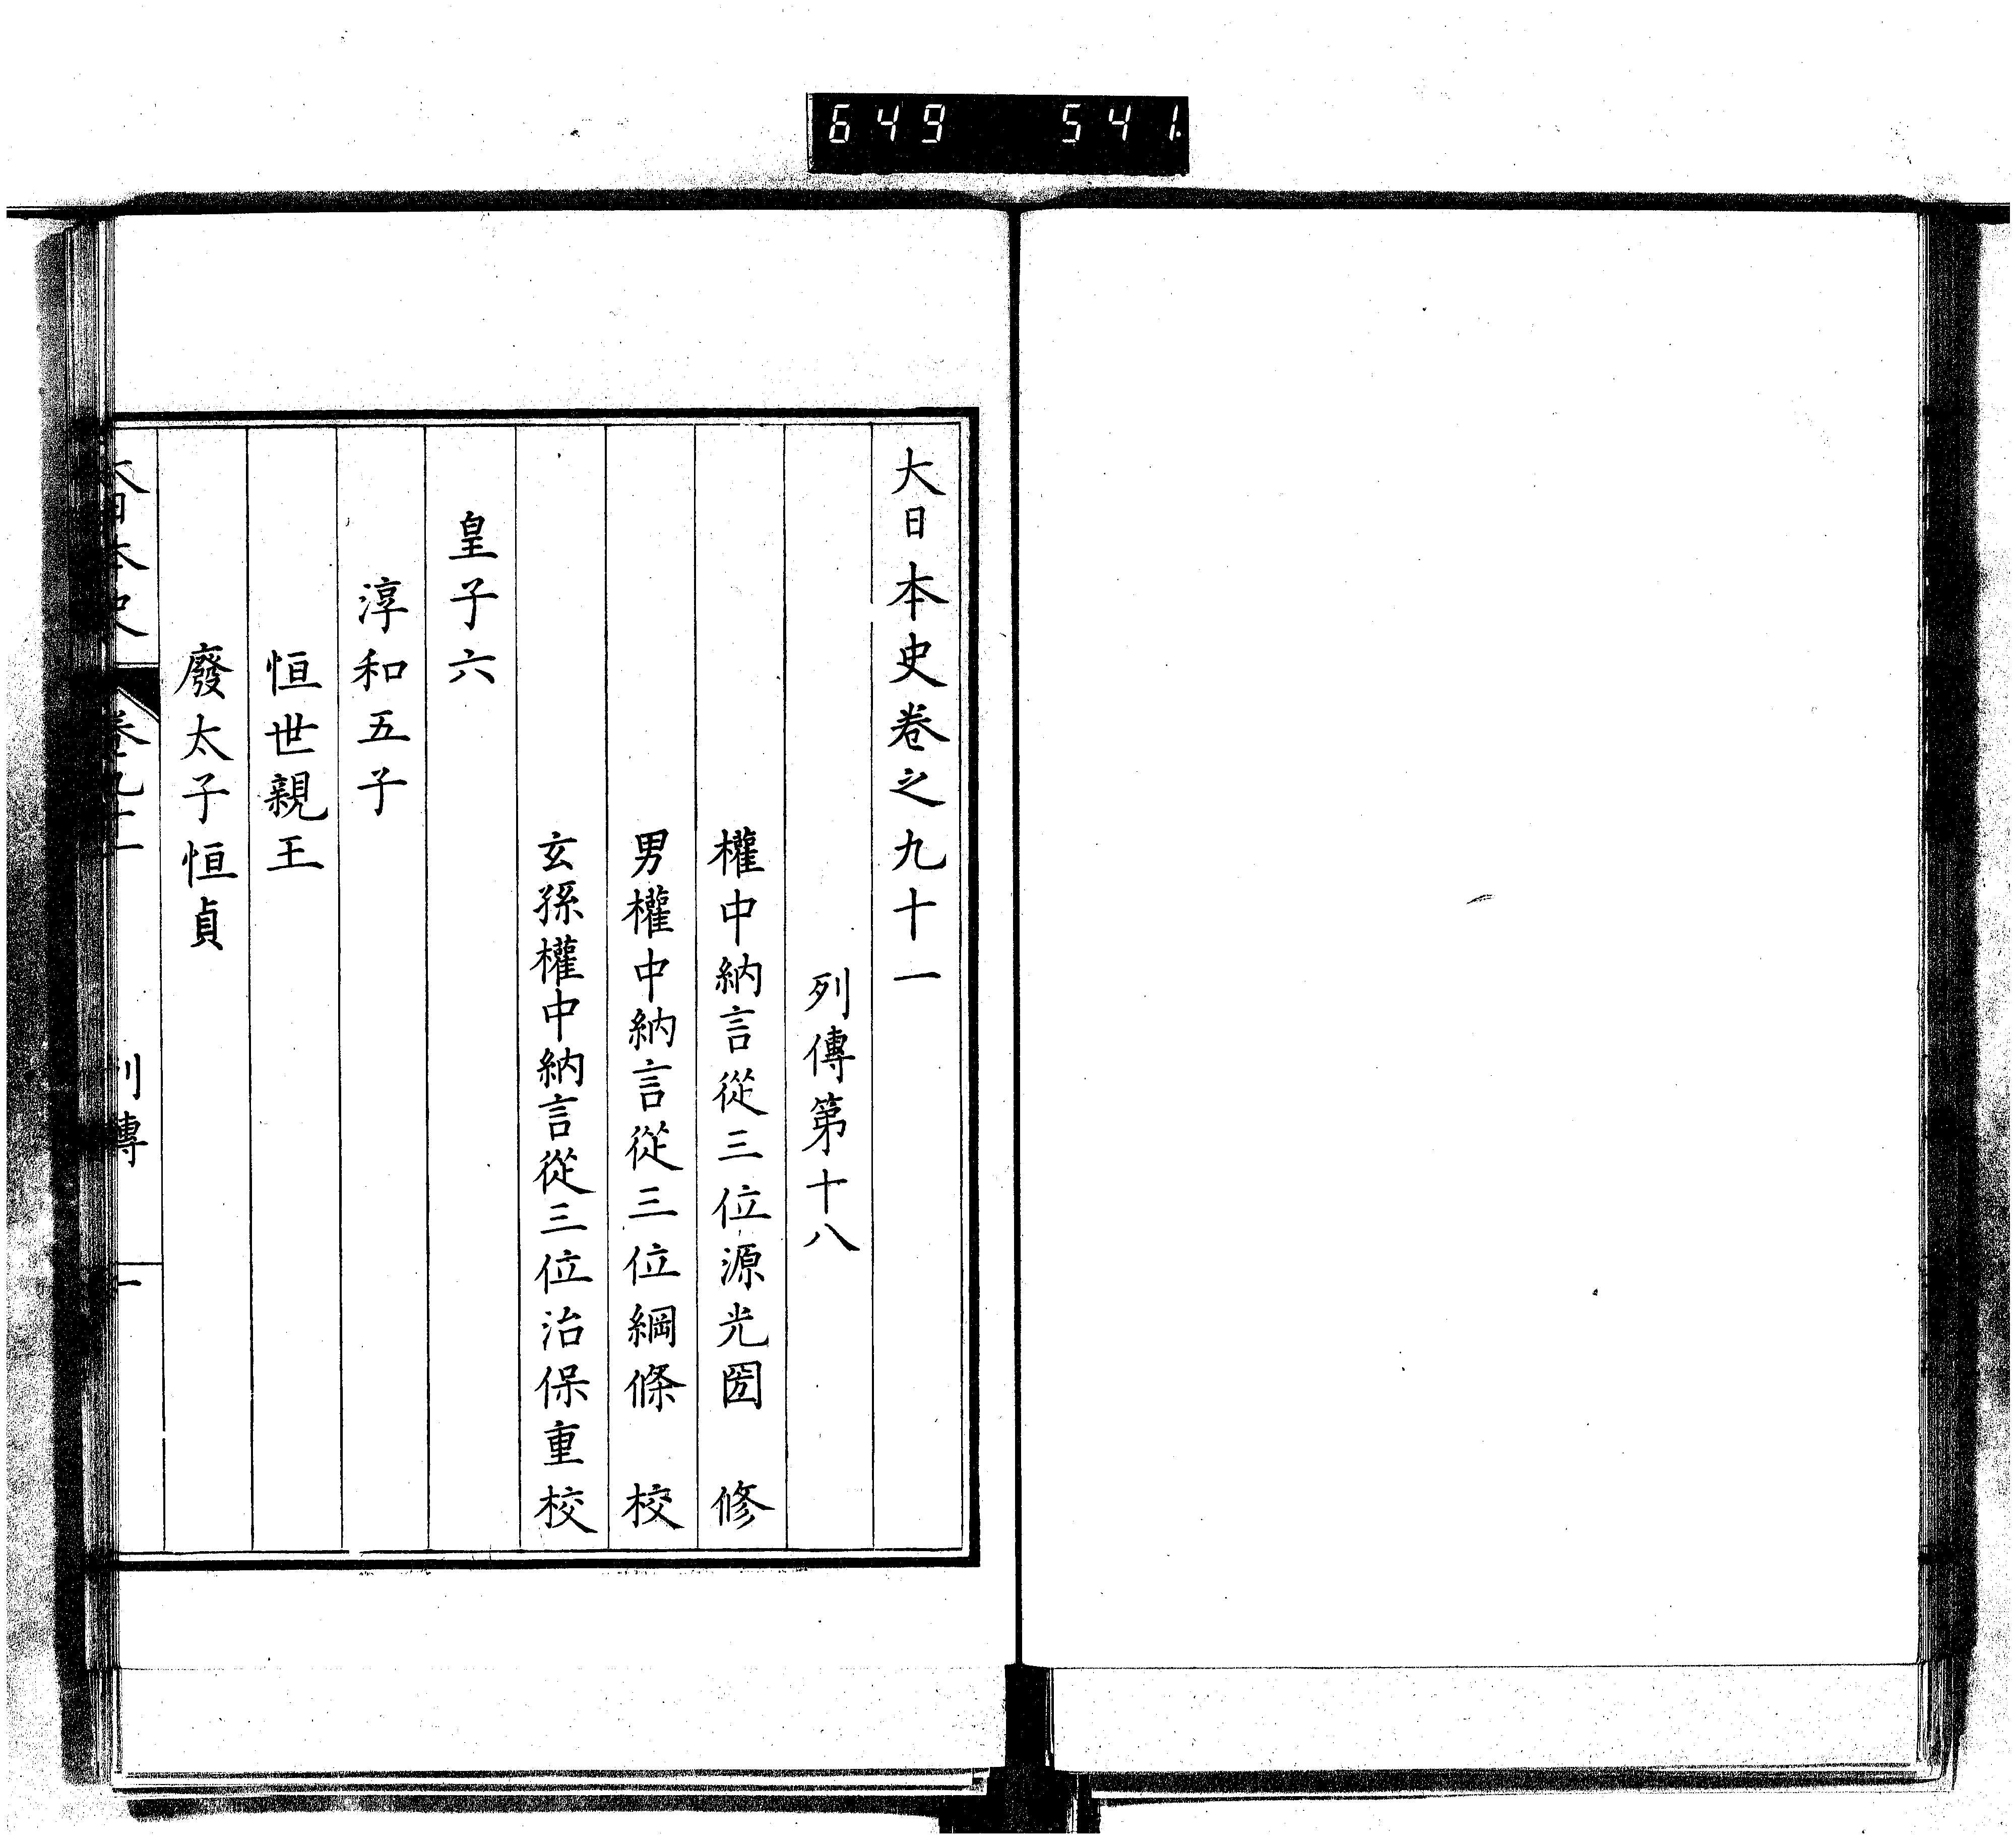 649 541.
大日本史卷之九十一
列傳第十八
權中納言從三位源光圀 修
男權中納言從三位綱條 校
玄孫權中納言從三位治保重校
皇子六
淳和五子
恒世親王
廢太子恒貞
大日本史 卷九十一 列傳 一